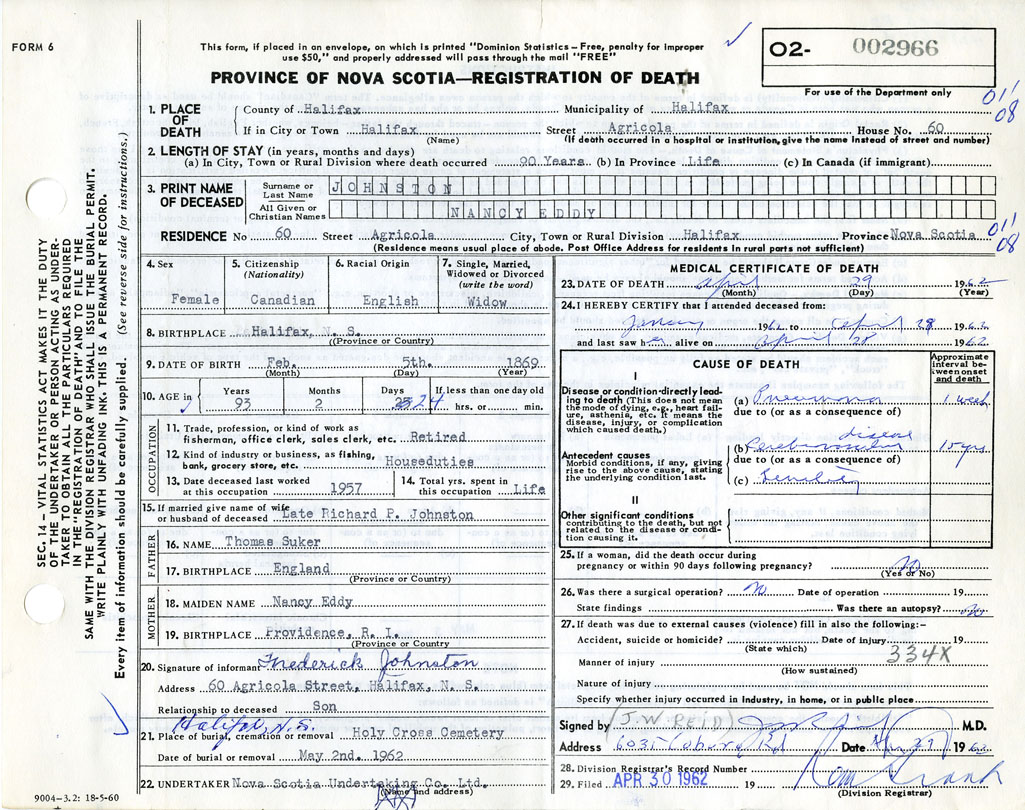 FORM 6
This form, if placed in an envelope, on which is printed "Dominion Statistics—Free, penalty for improper
use $50," and properly addressed will pass through the mail "FREE"
O2- 002966
For use of the Department only
PROVINCE OF NOVA SCOTIA—REGISTRATION OF DEATH
01'
08
1. PLACE OF DEATH
County of Halifax Municipality of Halifax
If in City or Town Halifax Street Agricola House No. 60
(Name) (If death occurred in a hospital or institution, give the name instead of street and number)
2. LENGTH OF STAY (in years, months and days)
(a) In City, Town or Rural Division where death occurred 90 Years (b) In Province Life (c) In Canada (if immigrant)
3. PRINT NAME OF DECEASED
Surname or Last Name JOHNSTON
All Given or Christian Names NANCY EDDY
RESIDENCE No 60 Street Agricola City, Town or Rural Division Halifax Province Nova Scotia
01'
08
(Residence means usual place of abode. Post Office Address for residents in rural parts not sufficient)
4. Sex Female
5. Citizenship (Nationality) Canadian
6. Racial Origin English
7. Single, Married, Widowed or Divorced (write the word) Widow
8. BIRTHPLACE Halifax, N. S.
(Province or Country)
9. DATE OF BIRTH Feb. 5th. 1869
(Month) (Day) (Year)
10. AGE in Years 93 Months 2 Days 24 If less than one day old hrs. or min.
OCCUPATION
11. Trade, profession, or kind of work as
fisherman, office clerk, sales clerk, etc. Retired
12. Kind of industry or business, as fishing,
bank, grocery store, etc. Houseduties
13. Date deceased last worked
at this occupation 1957
14. Total yrs. spent in
this occupation Life
15. If married give name of wife
or husband of deceased Late Richard P. Johnston
FATHER
16. NAME Thomas Suker
17. BIRTHPLACE England
(Province or Country)
MOTHER
18. MAIDEN NAME Nancy Eddy
19. BIRTHPLACE Providence, R. I.
(Province or Country)
20. Signature of informant Frederick Johnston
Address 60 Agricola Street, Halifax, N. S.
Relationship to deceased Son
Halifax, N.S.
21. Place of burial, cremation or removal Holy Cross Cemetery
Date of burial or removal May 2nd. 1962
22. UNDERTAKER Nova Scotia Undertaking Co. Ltd.
(Name and address)
9004-3.2: 18-5-60
MEDICAL CERTIFICATE OF DEATH
23. DATE OF DEATH April 29 1962
(Month) (Day) (Year)
24. I HEREBY CERTIFY that I attended deceased from:
January 1962 to April 28 1962
and last saw her alive on April 28 1962
CAUSE OF DEATH
Approximate interval between onset and death
I
Disease or condition directly leading to death (This does not mean the mode of dying, e.g., heart failure, asthenia, etc. It means the disease, injury, or complication which caused death.)
(a) Pneumonia 1 week
due to (or as a consequence of)
Antecedent causes
Morbid conditions, if any, giving rise to the above cause, stating the underlying condition last.
(b) Cerebrovascular disease 15 yrs
due to (or as a consequence of)
(c) Senility
II
Other significant conditions
contributing to the death, but not related to the disease or condition causing it.
25. If a woman, did the death occur during
pregnancy or within 90 days following pregnancy? No
(Yes or No)
26. Was there a surgical operation? No Date of operation 19
State findings Was there an autopsy? No
27. If death was due to external causes (violence) fill in also the following:—
Accident, suicide or homicide? Date of injury 19
(State which)
334X
Manner of injury
(How sustained)
Nature of injury
Specify whether injury occurred in industry, in home, or in public place
Signed by (J.W. REID) M.D.
Address 6035 Coburg Rd Date 1962
28. Division Registrar's Record Number
29. Filed APR 30 1962 19
(Division Registrar)
SEC. 14—VITAL STATISTICS ACT MAKES IT THE DUTY
OF THE UNDERTAKER OR PERSON ACTING AS UNDER-
TAKER TO OBTAIN ALL THE PARTICULARS REQUIRED
IN THE "REGISTRATION OF DEATH" AND TO FILE THE
SAME WITH THE DIVISION REGISTRAR WHO SHALL ISSUE THE BURIAL PERMIT.
WRITE PLAINLY WITH UNFADING INK. THIS IS A PERMANENT RECORD.
Every item of information should be carefully supplied. (See reverse side for instructions.)